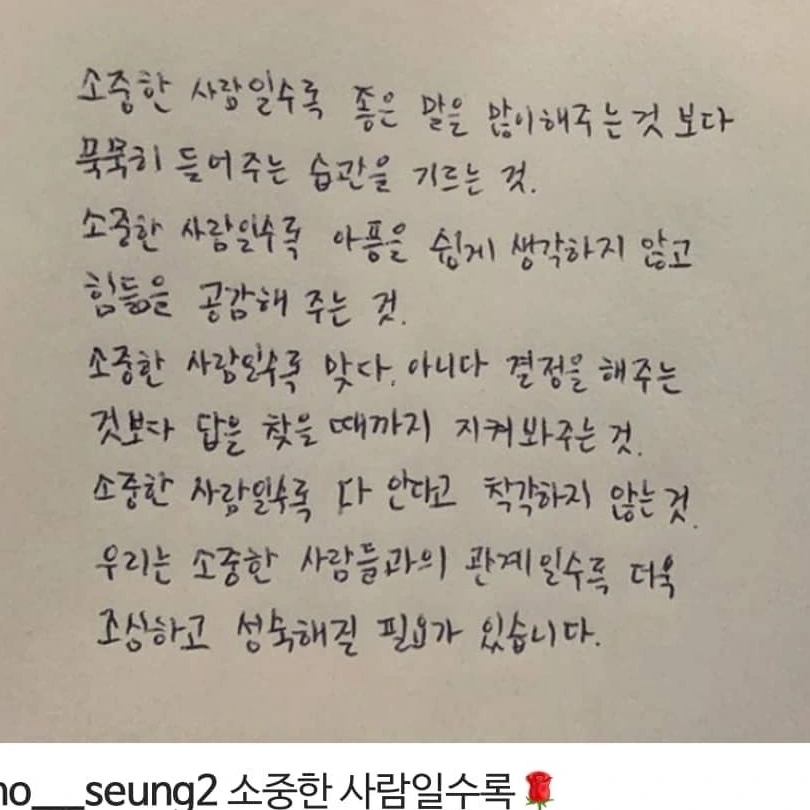 소중한 사람일수록 좋은 말을 많이해주는것 보다
묵묵히 들어주는 습관을 기르는 것.
소중한 사람일수록 아픔을 쉽게 생각하지 않고
힘듦을 공감해 주는 것.
소중한 사람일수록 맞다. 아니다 결정을 해주는
것보다 답을 찾을때까지 지켜봐주는것.
소중한 사람일수록 다 안다고 착각하지 않는것.
우리는 소중한 사람들과의 관계일수록 더욱
조심하고 성숙해질 필요가 있습니다.
no___seung2 소중한 사람일수록🌹